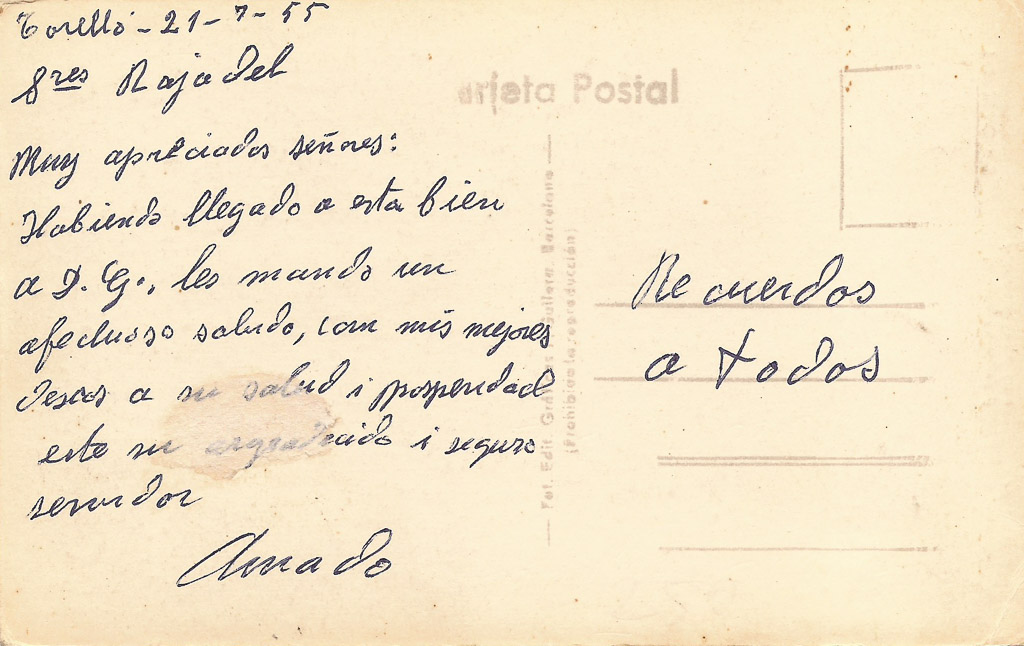 Torelló - 21 - 7 - 55
Sres Rajadel
Muy apreciados señores:
Habiendo llegado a esta bien
a D. G., les mando un
afectuoso saludo, con mis mejores
deseos a su salud i prosperidad
este su agradecido i seguro
servidor
Amado
arjeta Postal
Fot. Edit. Guilera. Barcelona
(Prohibida la reproducción)
Recuerdos
a todos